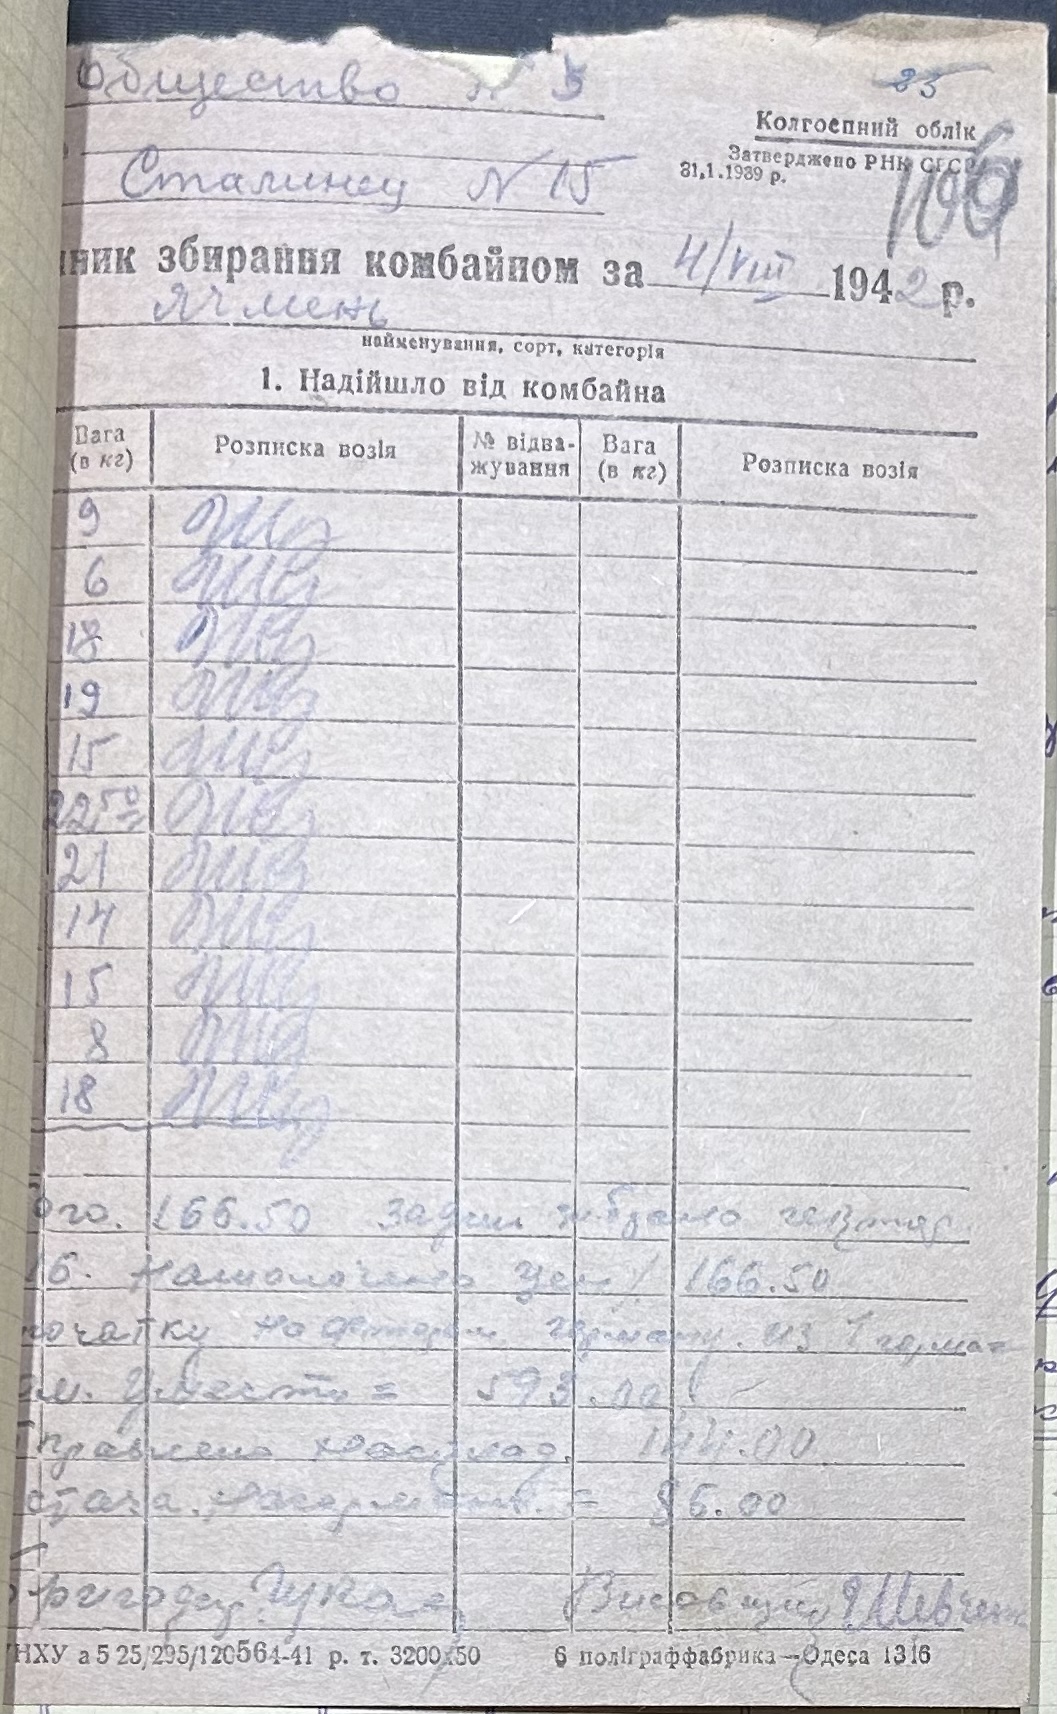 Общество № 5
85
Колгоспний облік
Затверджено РНК СРСР
31.1.1939 р.
106
Сталинец N 15
нник збирання комбайном за 4/VIII 1942 р.
Ячмень
найменування, сорт, категорія
1. Надійшло від комбайна
Вага (в кг) Розписка возія № відва-жування Вага (в кг) Розписка возія
9
6
18
19
15
22,50
21
14
15
8
18
ого. 166.50 за день
16. Намолочено цен/ 166.50
початку на из 1
593.00
правлено на склад. 144.00
стача = 85.00
Бригадир Весовщик Шевченк
УНХУ а5 25/295/120564-41 р. т. 3200х50 6 поліграффабрика—Одеса 1316